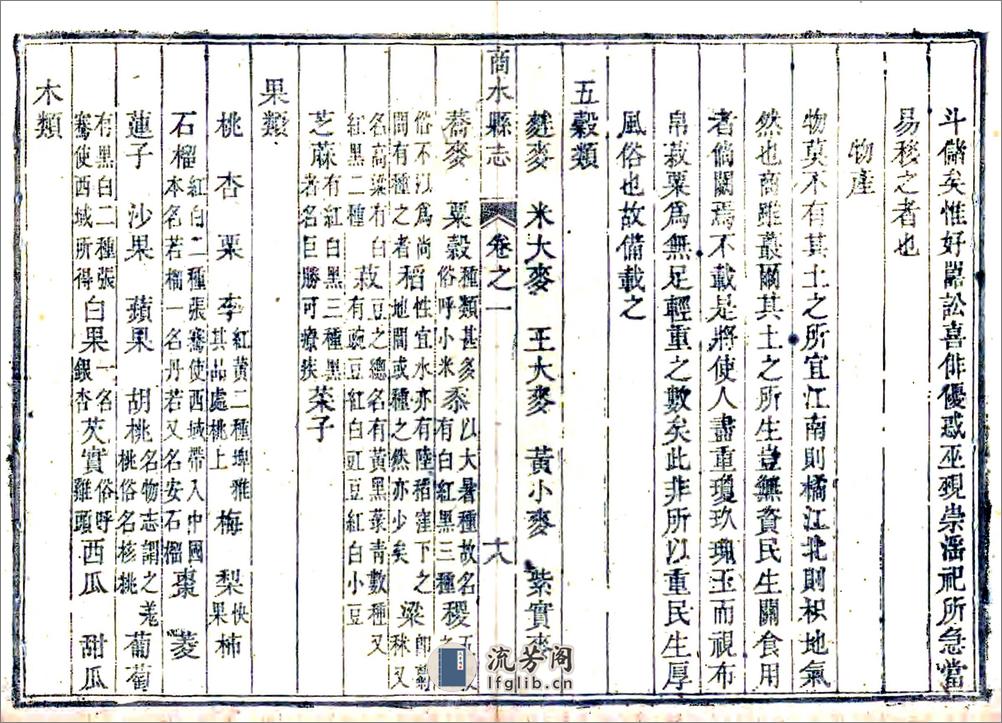 斗儲矣惟好嚚訟喜俳優惑巫覡崇淫祀所急當
易移之者也
物產
物莫不有其土之所宜江南則橘江北則枳地氣
然也商雖叢爾其土之所生豈無資民生關食用
者倘闕焉不載是將使人盡重瓊玖珮玉而視布
帛菽粟為無足輕重之數矣此非所以重民生厚
風俗也故備載之
五穀類
麰麥 米大麥 王大麥 黃小麥 紫實麥
商水縣志 卷之一 十八
蕎麥 粟穀種類甚多俗呼小米黍以大暑種故名有白紅黑三種稷
俗不以為尚間有種之者稻性宜水亦有陸稻窪下之地間或種之然亦少矣粱秫又
名高粱有白紅黑二種菽豆之總名有黃黑菉青數種又有豌豆紅白豇豆紅白小豆
芝蔴有紅白黑三種黑者名巨勝可療疾 荏子
果類
桃 杏 栗 李紅黃二種埤雅其品處桃上梅 梨快果柿
石榴紅白二種張騫使西域帶入中國本名若榴一名丹若又名安石榴棗 菱
蓮子 沙果 蘋果 胡桃名物志謂之羌桃俗名核桃葡萄
有黑白二種張騫使西域所得白果一名銀杏芡實俗呼雞頭西瓜 甜瓜
木類
流芳閣
lfglib.cn